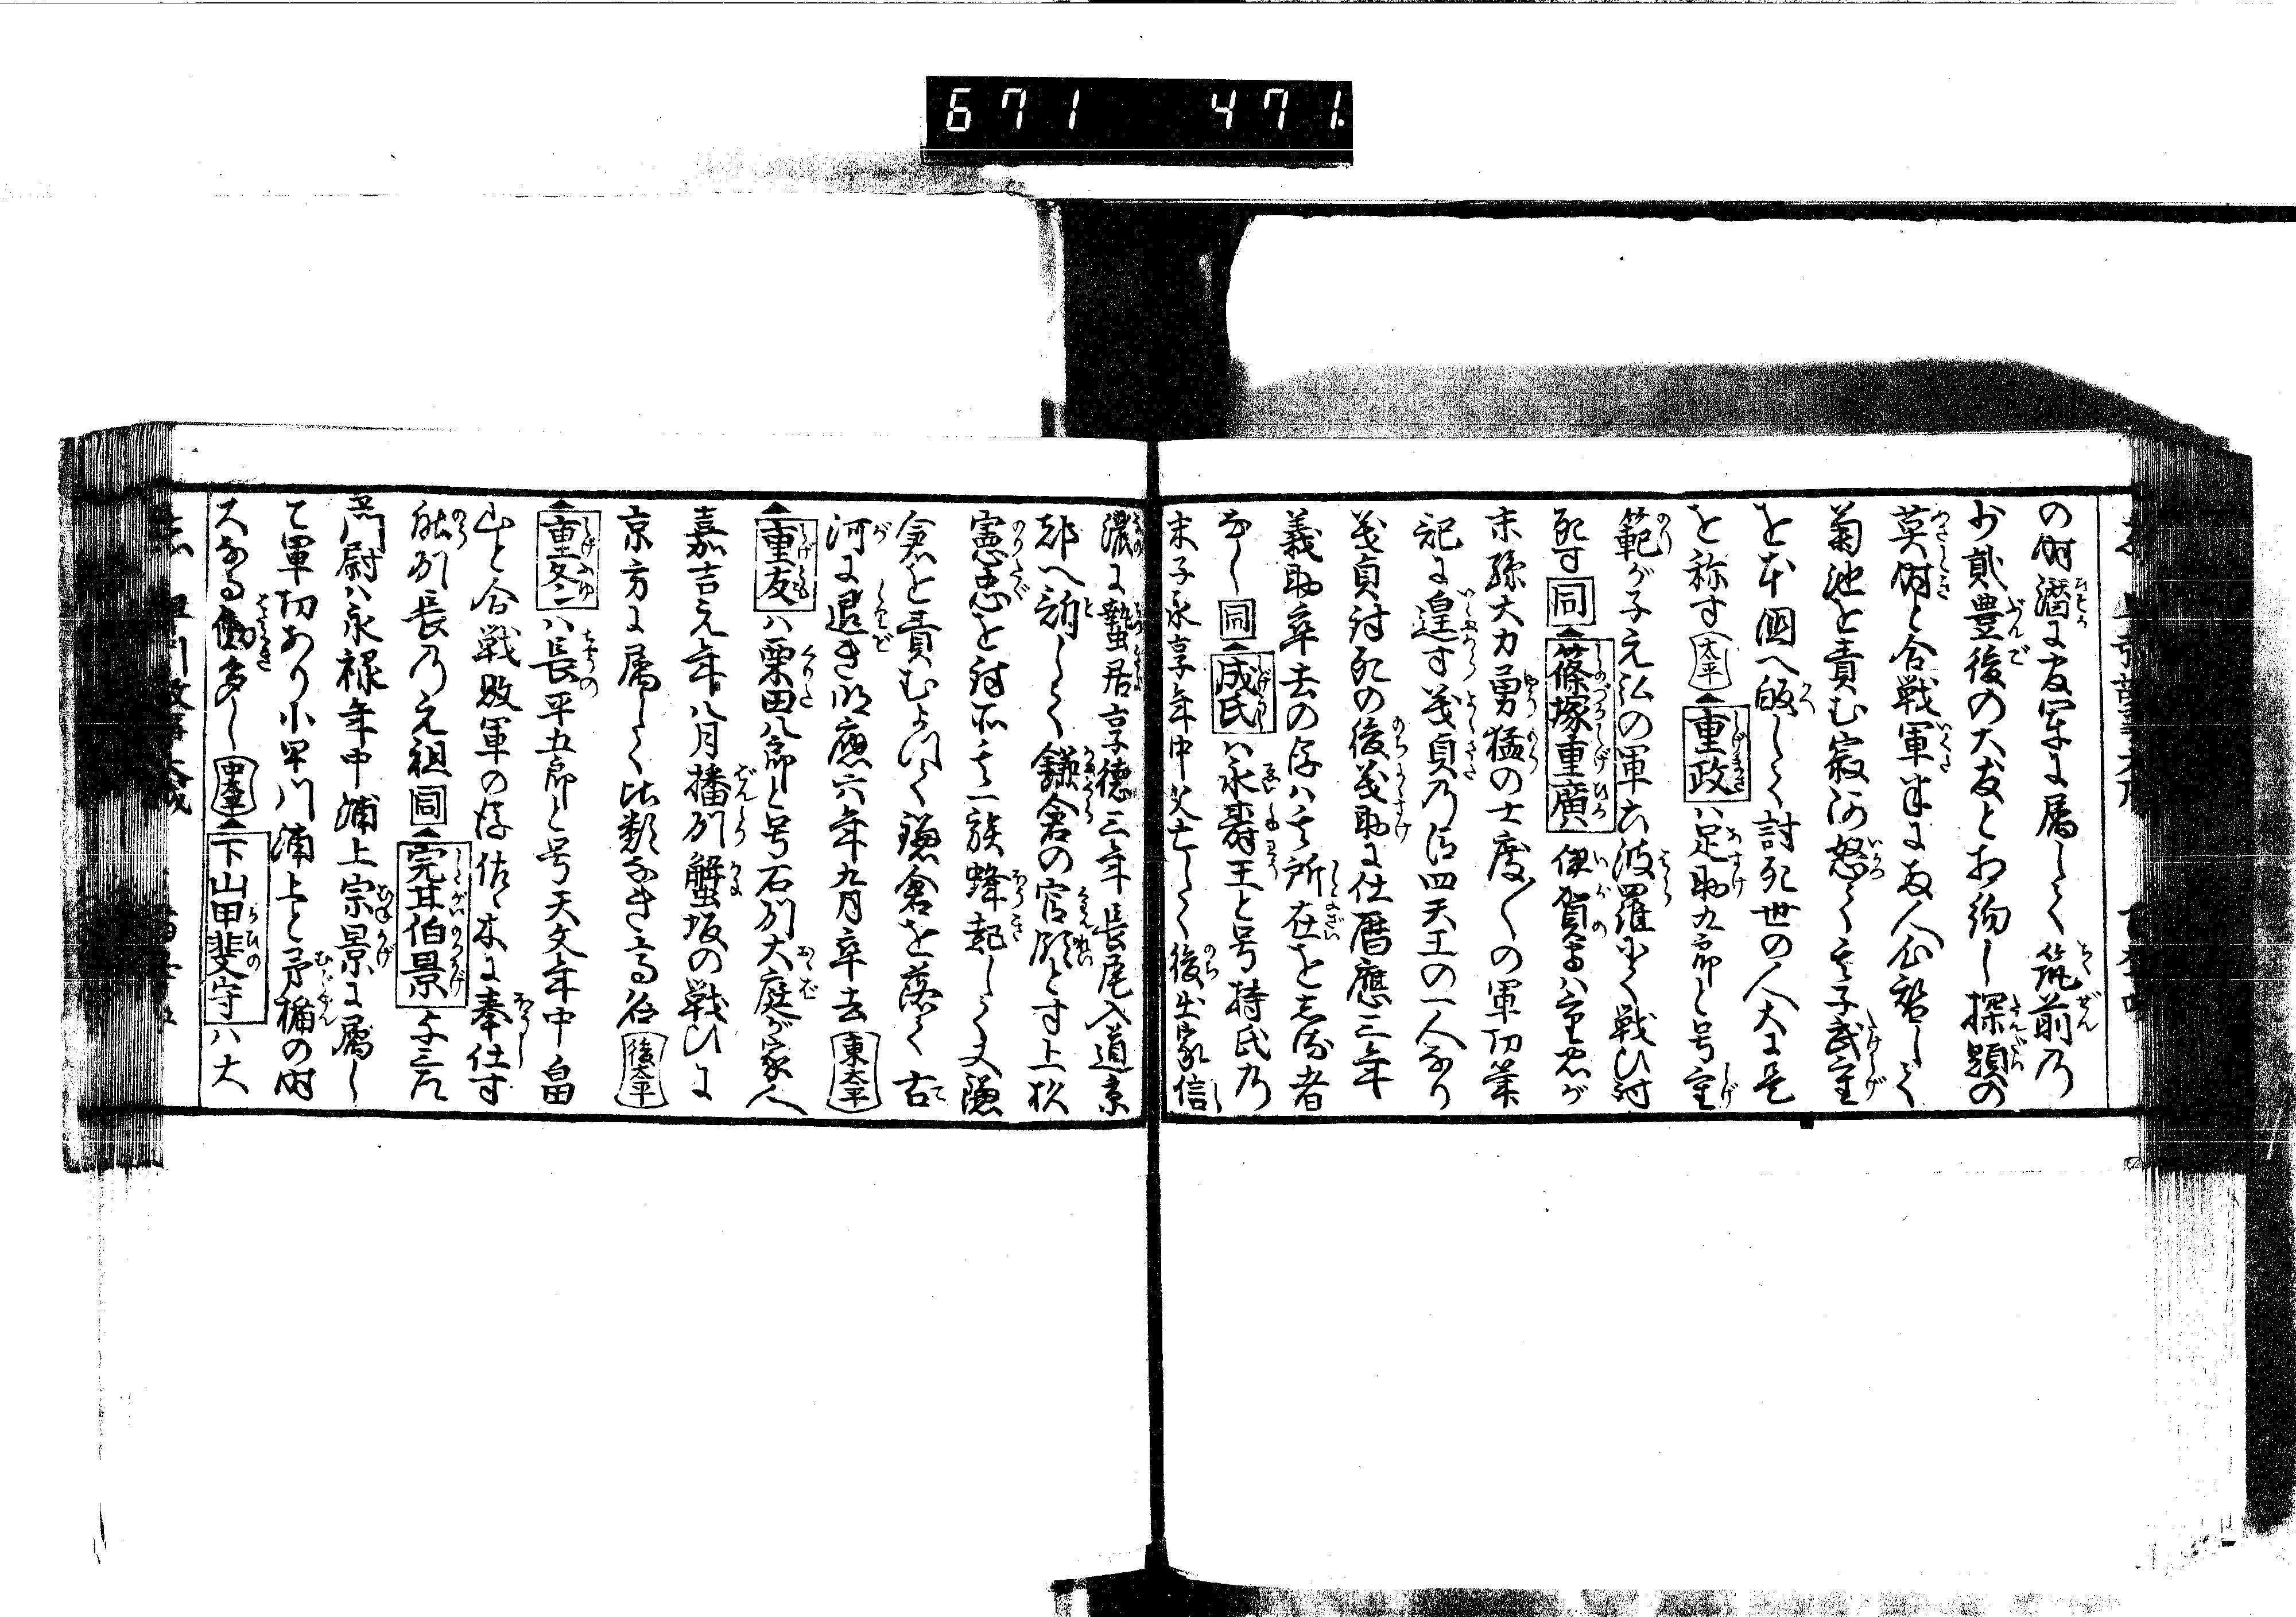 671 471
の時潜に官軍に属して筑前乃
少貳豊後の大友とわ約し探題の
英時と合戦軍半に両人心替して
菊池を責む寂阿怒て其子武重
を本國へ皈して討死世の人大に是
を称す 太平 重政ハ足助九郎と号重
範が子元弘の軍六波羅にて戦ひ討
死す 同 篠塚重廣 伊賀守ハ重忠が
末孫大力勇猛の士度〱の軍功筆
記に遑す義貞乃臣四天王の一人なり
義貞討死の後義助に仕暦應三年
義助卒去の後ハ其所在を知る者
なし 同 成氏ハ永壽王と号持氏乃
末子永享年中父亡して後出家信
濃に蟄居享徳三年長尾入道景
都へ訴して鎌倉の官領とす上杦
憲忠を討不其一族蜂起して又鎌
倉を責むよつて鎌倉を落て古
河に退き明應六年九月卒去 東太平
重友ハ栗田八郎と号石刕大庭が家人
嘉吉元年八月播刕蟹坂の戦ひに
京方に属して比類なき高名 後太平
重冬ハ長平五郎と号天文年中畠
山と合戦敗軍の後佐々木に奉仕す
能刕長乃元祖 同 完甘伯景 与三左
衛門尉ハ永禄年中浦上宗景に属し
て軍功あり小早川浦上と矛楯の時
大なる働多し 中太平 下山甲斐守ハ大